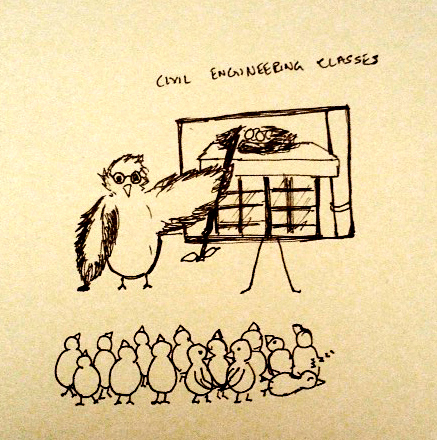 CIVIL ENGINEERING CLASSES
zzzz